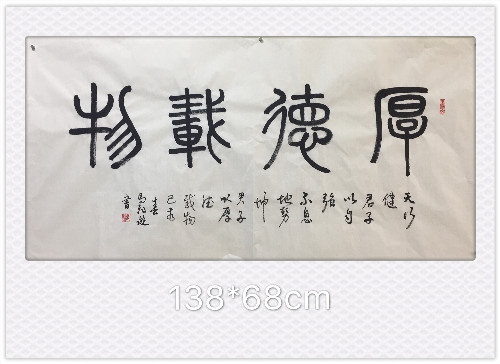 厚德載物
天行
健
君子
以自
强
不息
地势
坤
君子
以厚
德
载物
己亥
春
書
138*68cm